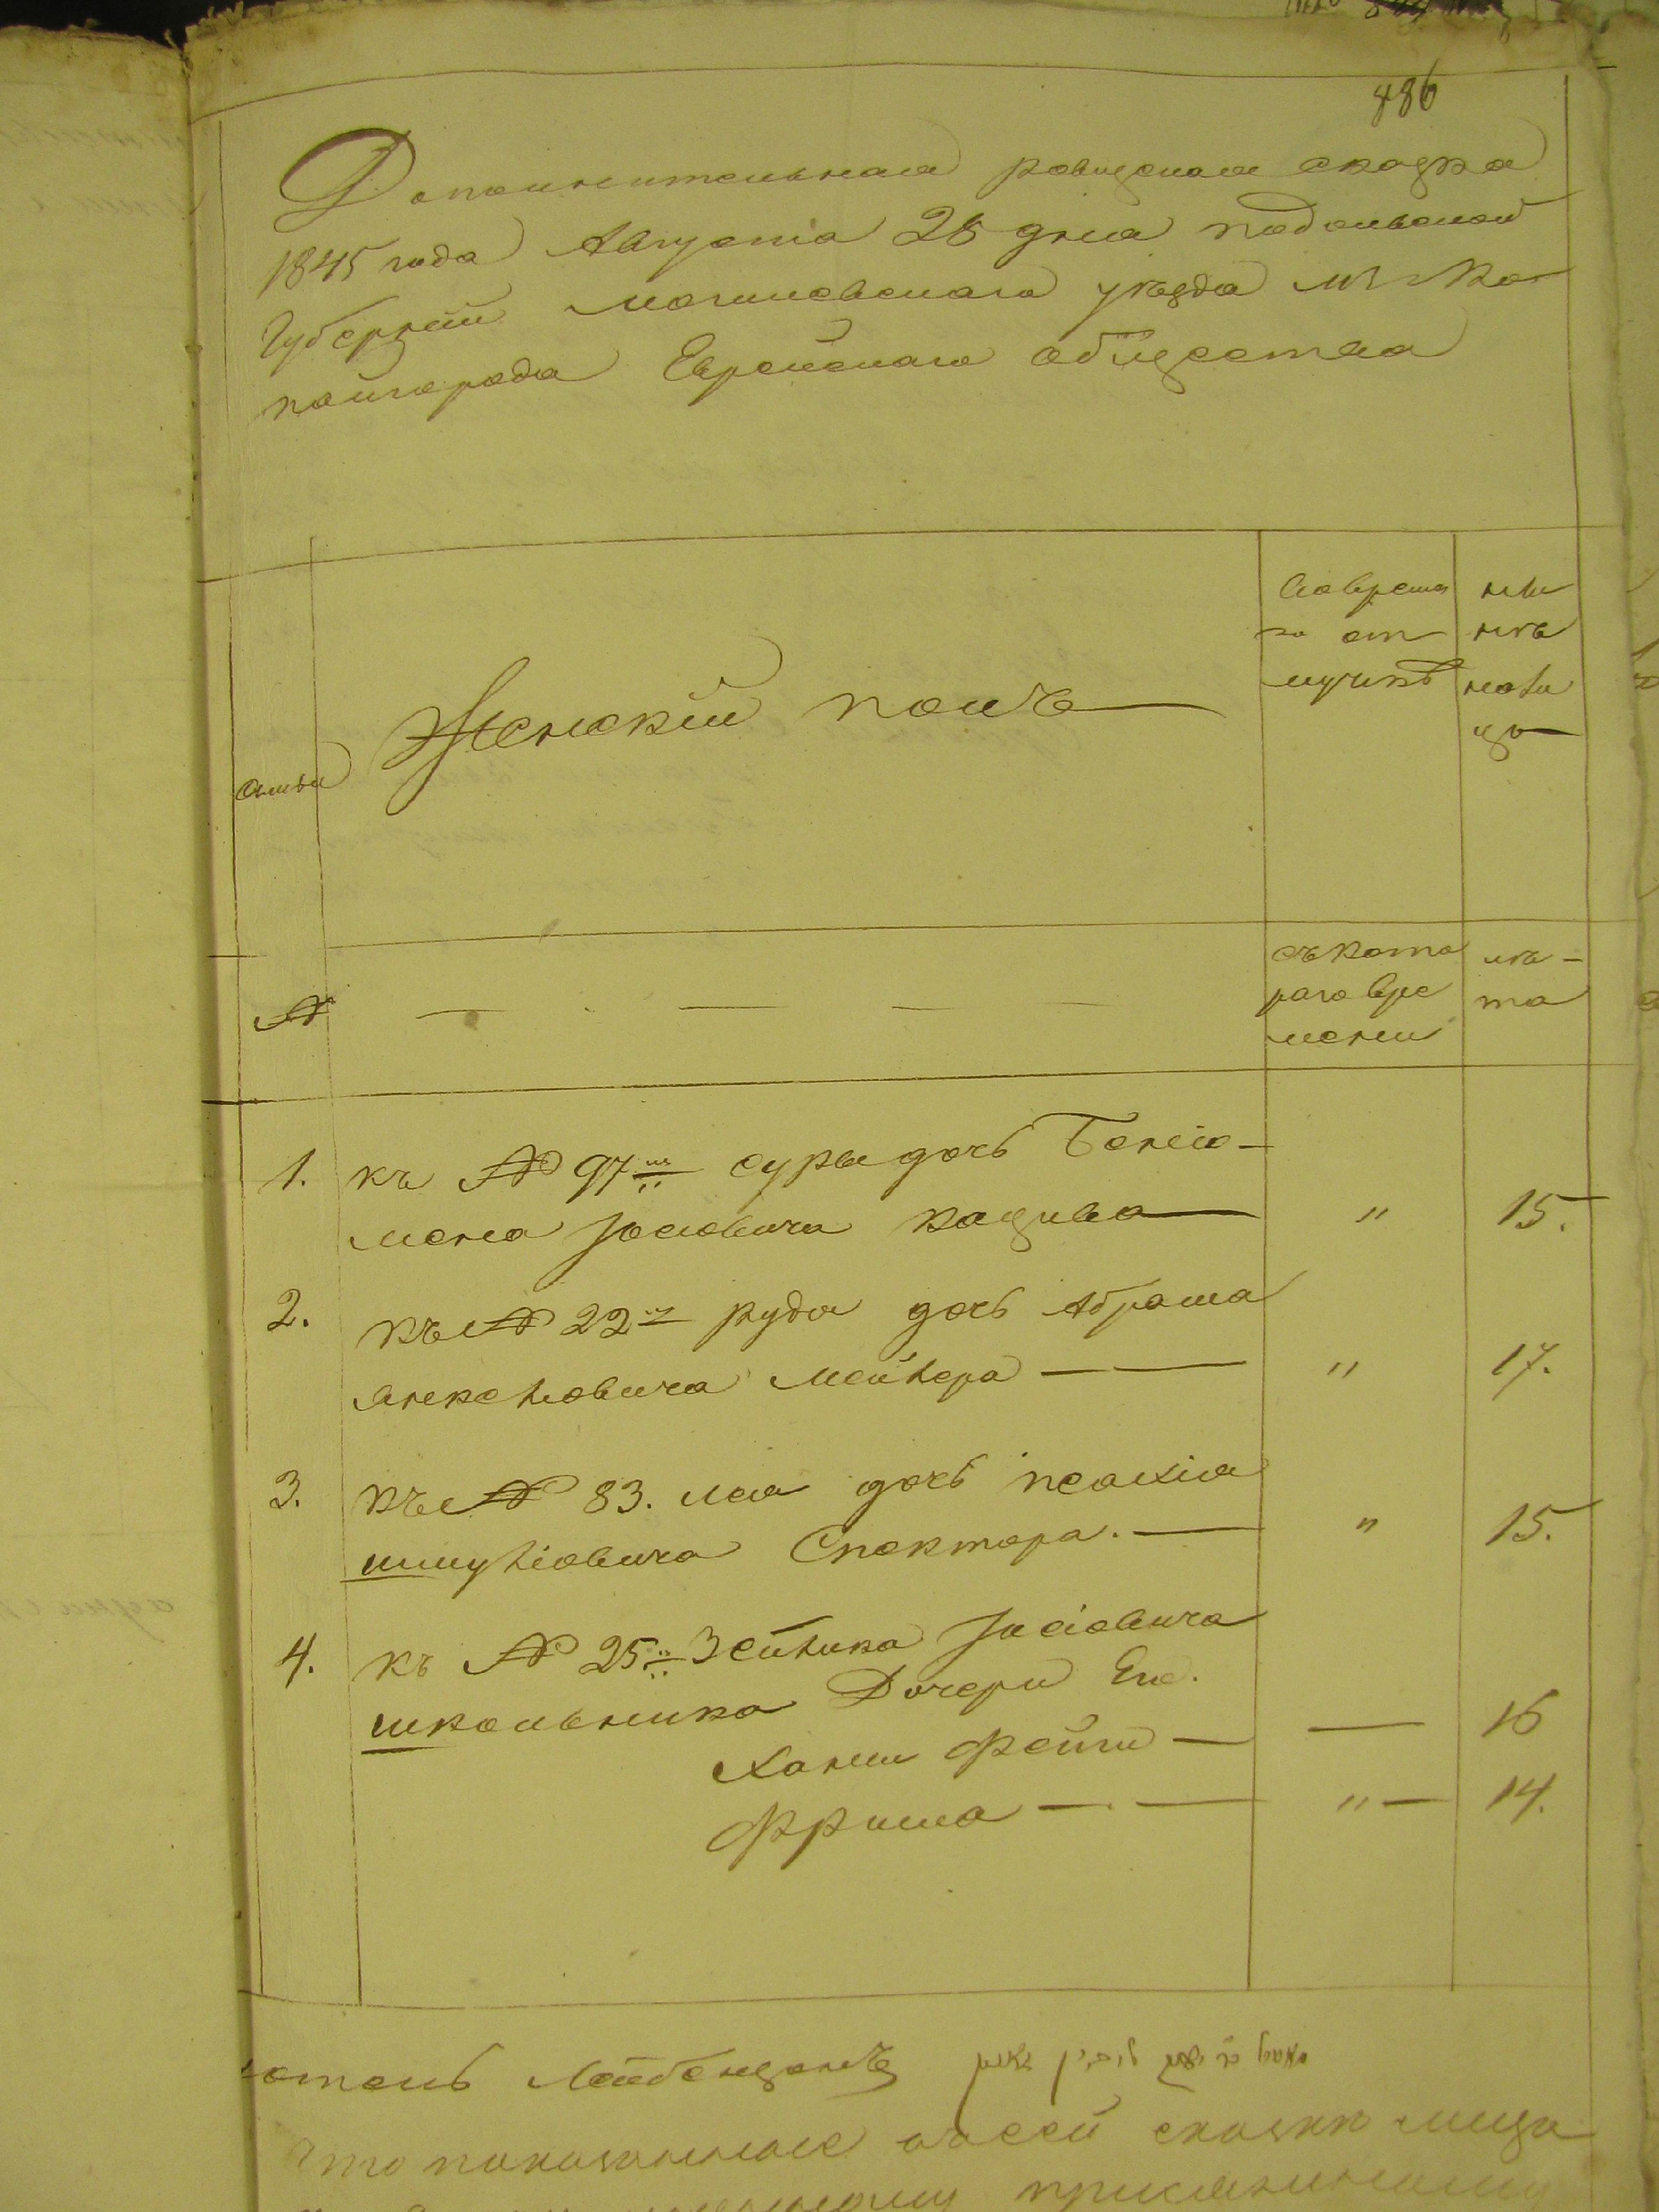 486
Дополнительная ревизская сказка
1845 года Августа 28 дня подольской
Губернии могилевскаго уезда м. Ко-
пайгорода Еврейскаго общества
Семьи
Женский полъ
Во време
но от
лучке
ны
не
на ли
цо
№
съ кото
раго вре
мени
ле-
та
1. къ № 97 суры дочь Бенiо-
мена Іосiовича кацива " 15.
2. къ № 22 руда дочь Абрама
янкелiовича Мейлера " 17.
3. къ № 83. леа дочь
шмулiовича Спектора. " 15.
4. къ № 25 Зейлика Іосiовича
школьника Дочери Его.
Ханы Фейги 16
Фрима " 14.
Лейбенцонъ
что показанные въ сей сказки лица